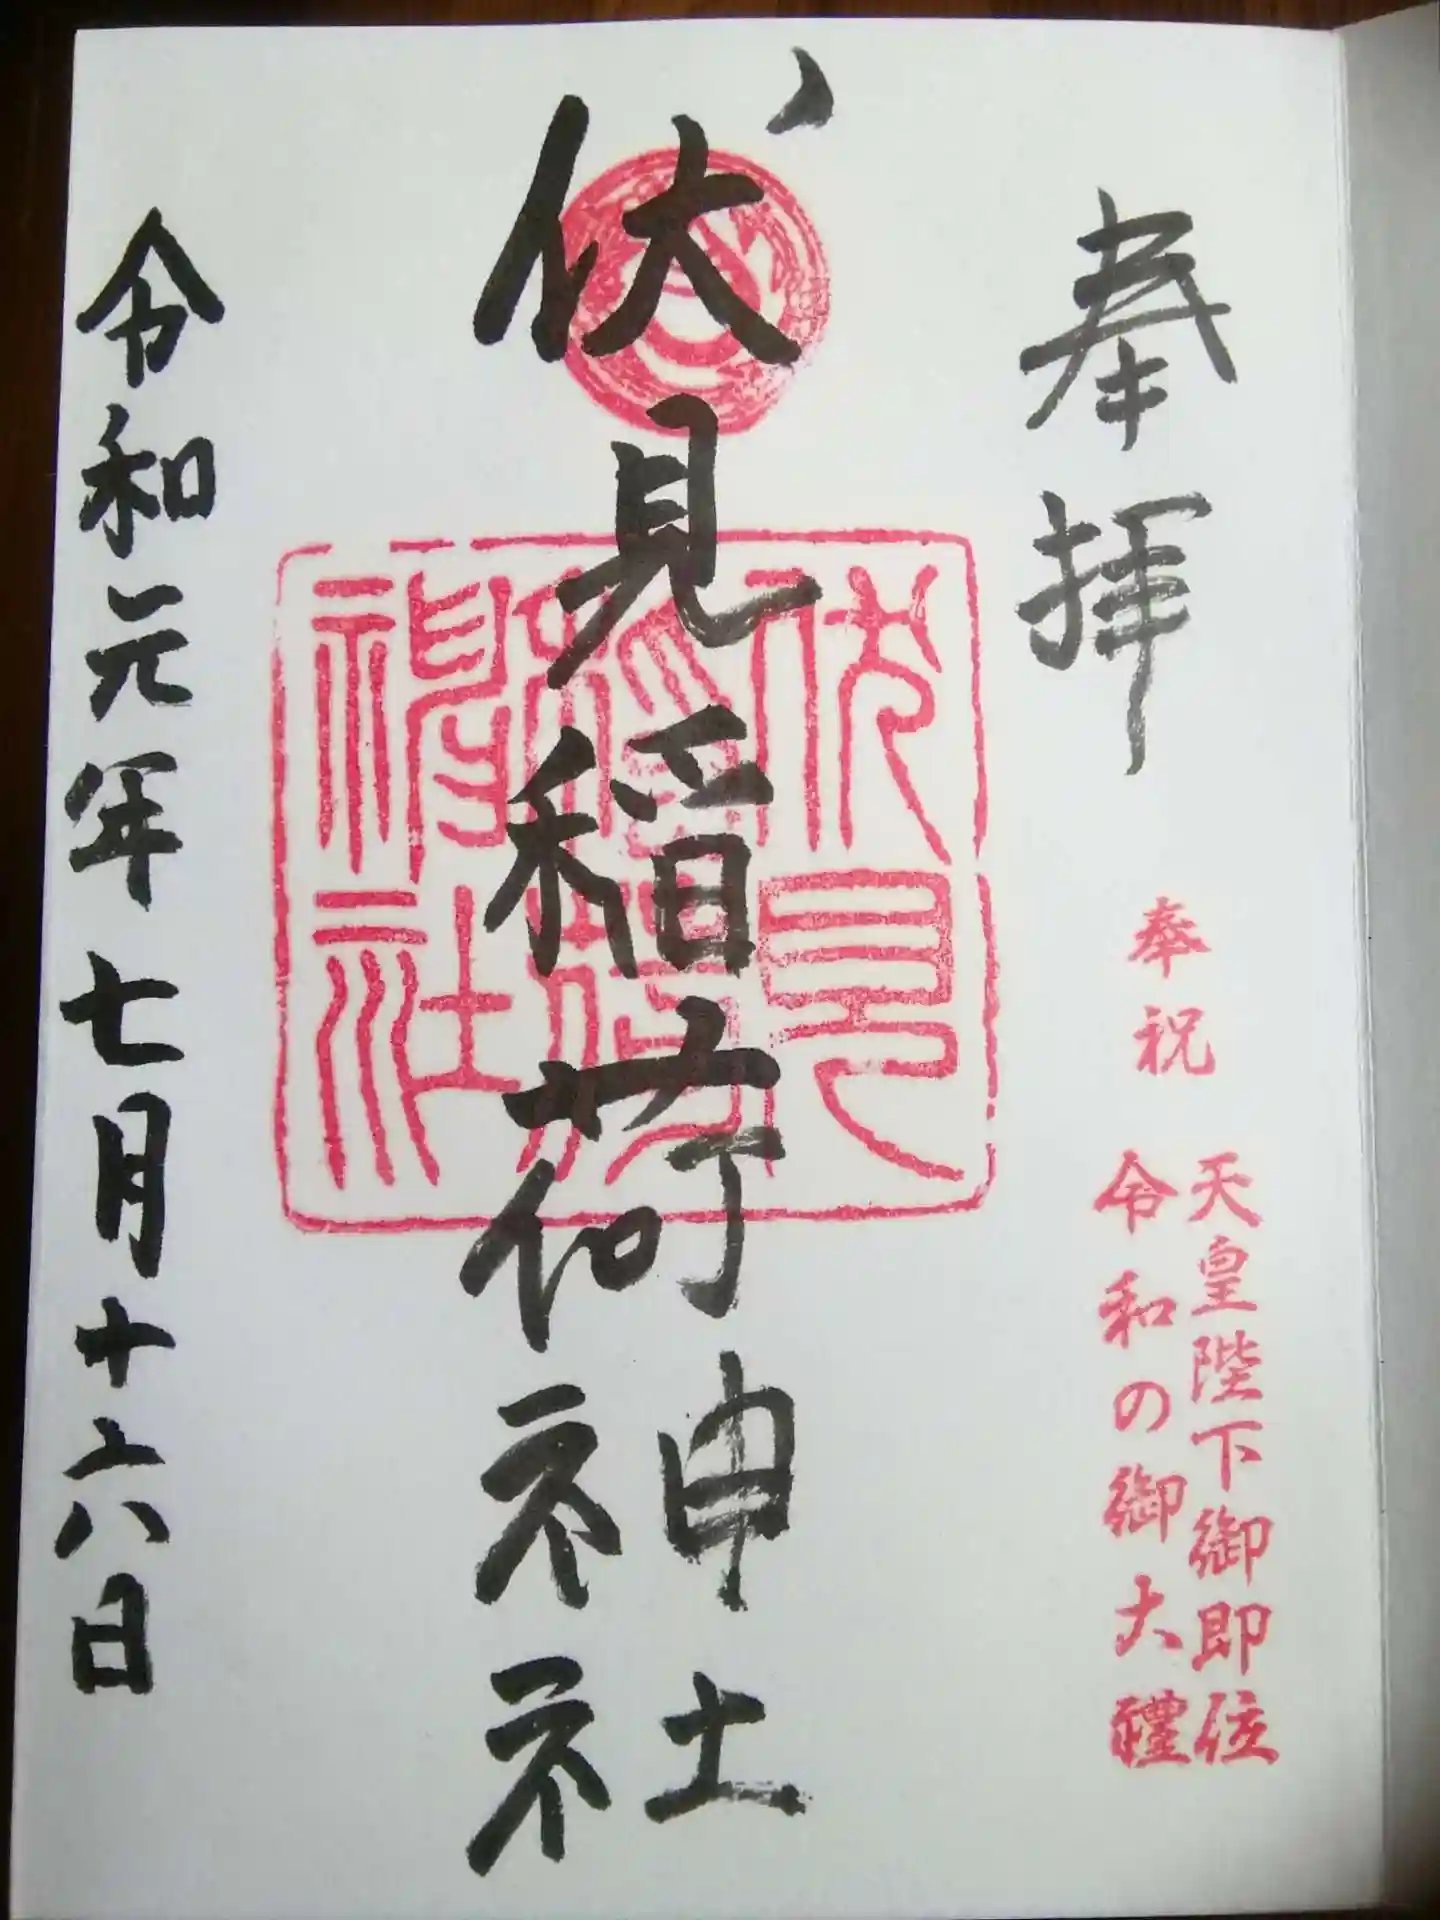 奉拝
奉祝
天皇陛下御即位
令和の御大禮
伏見稲荷神社
伏見
稲荷
神社
令和元年七月十六日